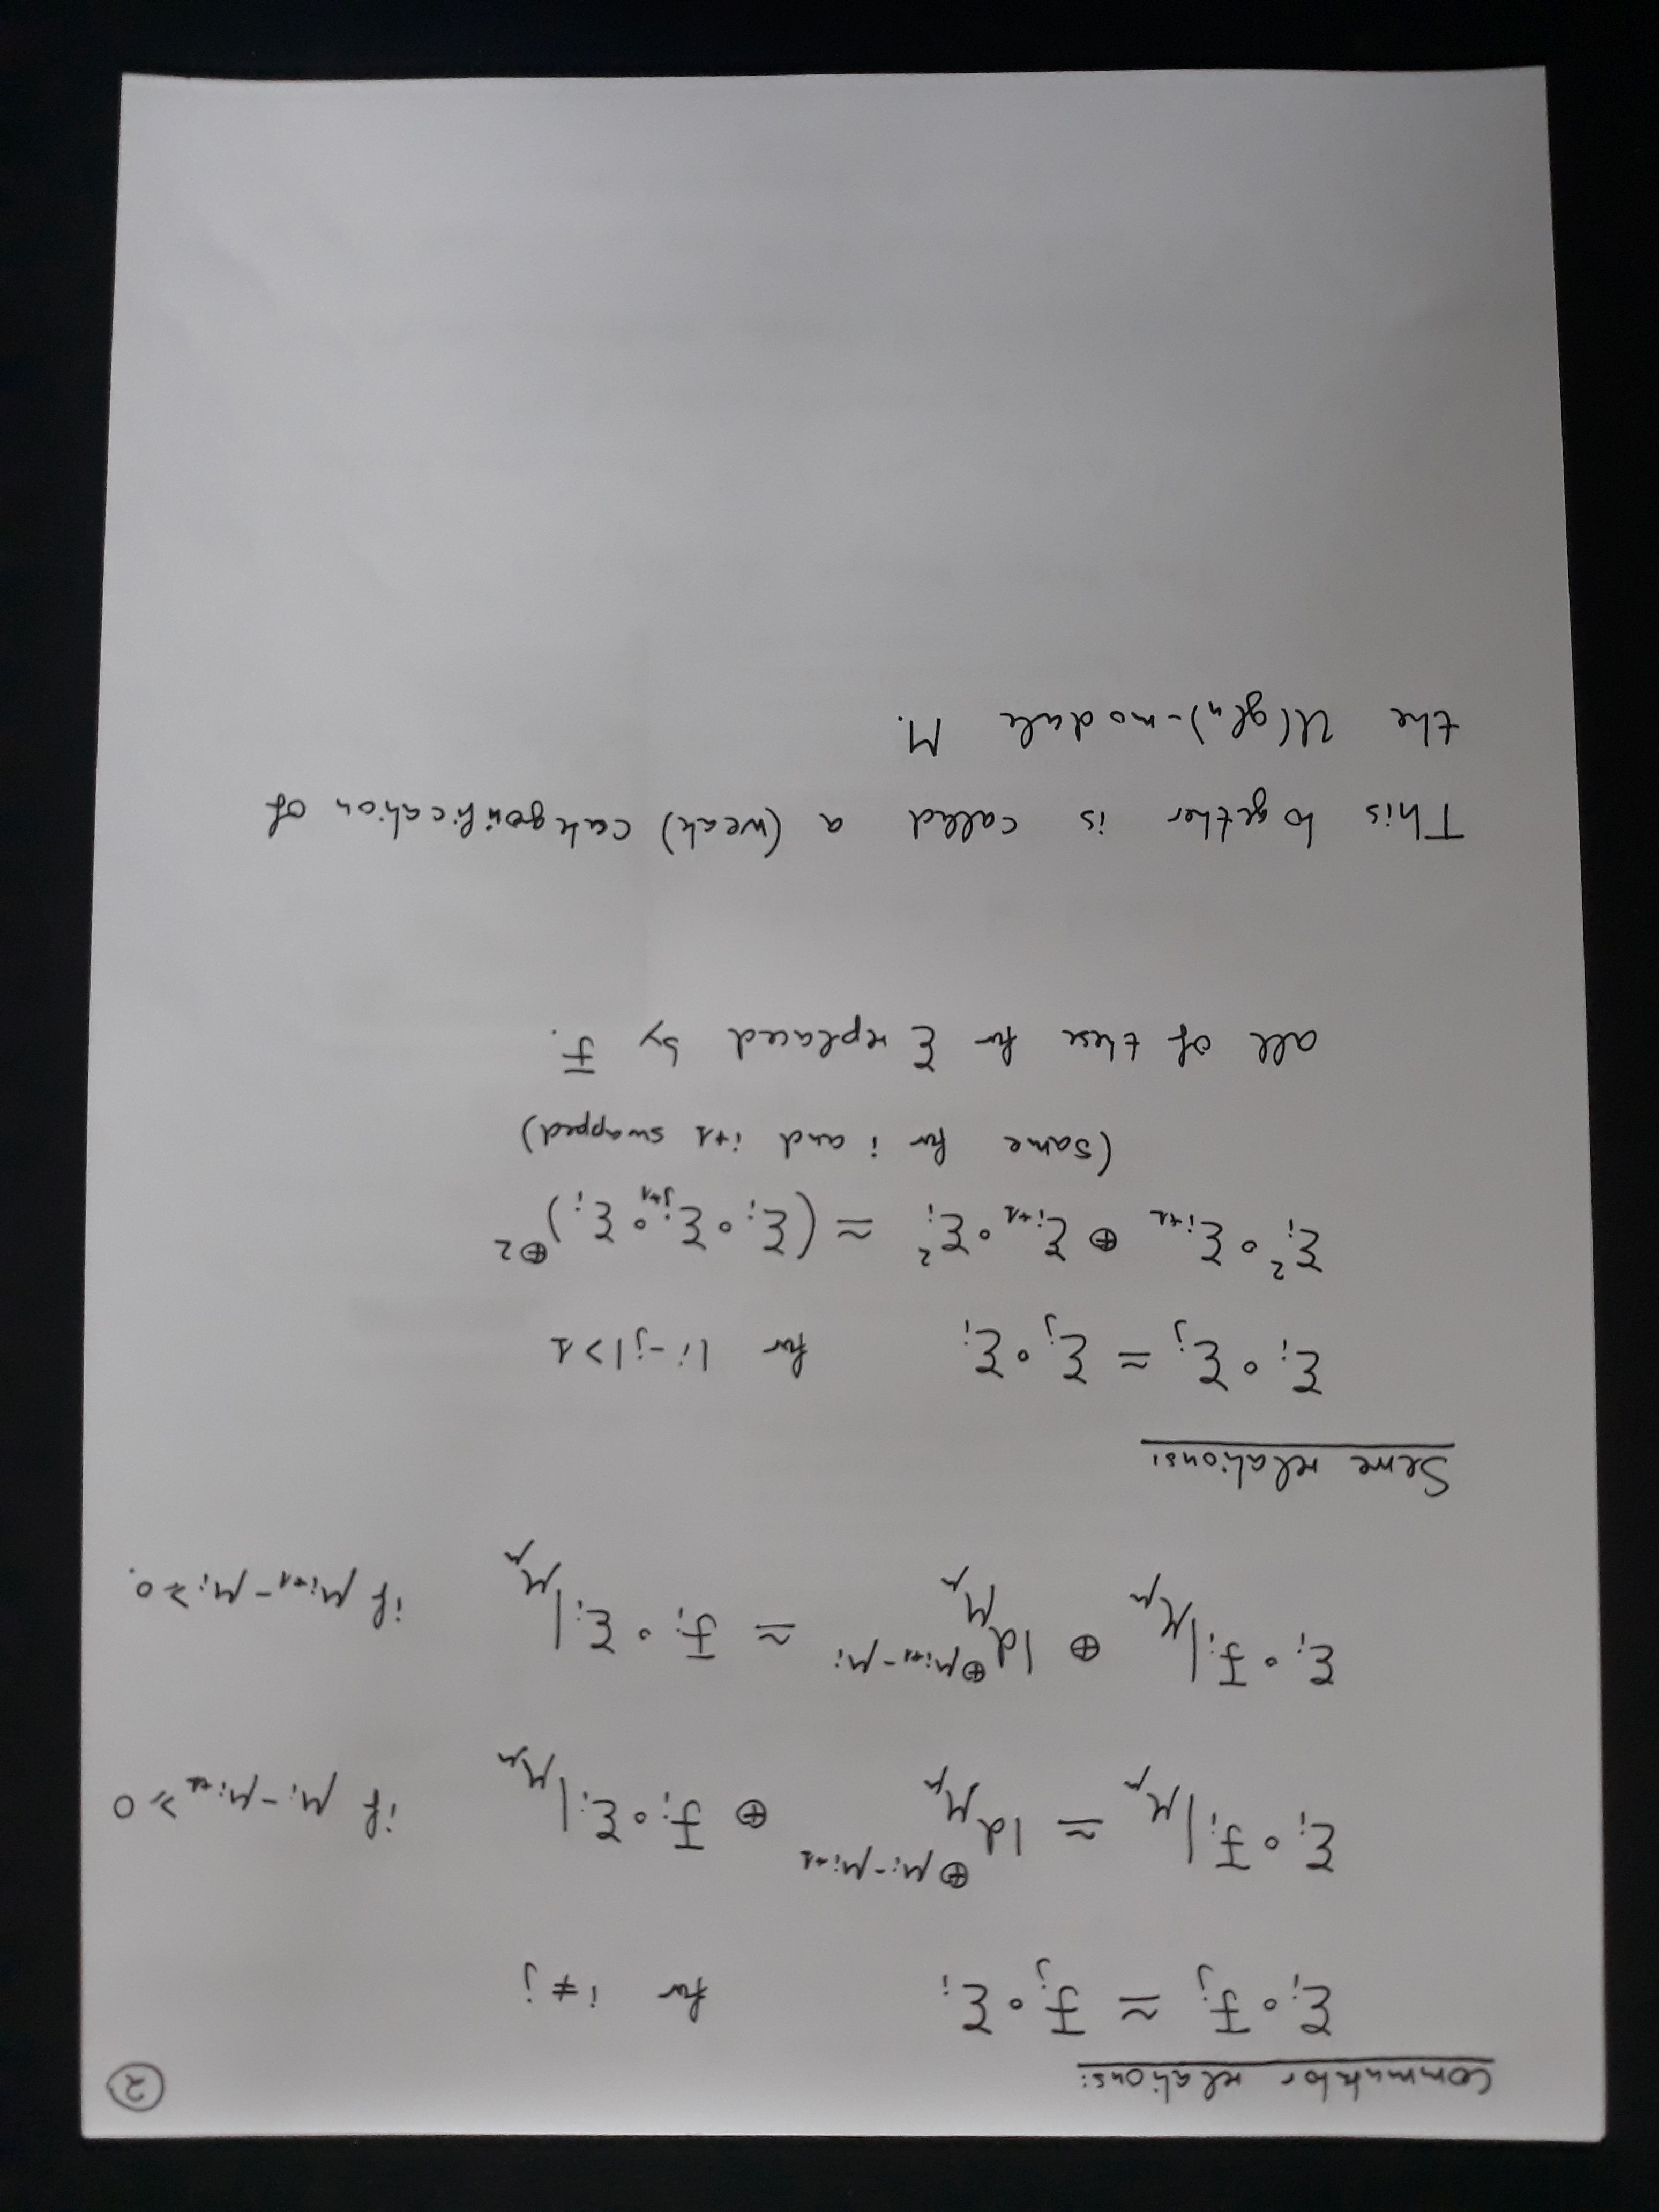 Commutator relations: ②
ℰ_i ∘ ℱ_j ≃ ℱ_j ∘ ℰ_i for i ≠ j
ℰ_i ∘ ℱ_i|_{M_μ} ≃ Id_{M_μ}^{⊕ μ_i - μ_{i+1}} ⊕ ℱ_i ∘ ℰ_i|_{M_μ} if μ_i - μ_{i+1} ≥ 0
ℰ_i ∘ ℱ_i|_{M_μ} ⊕ Id_{M_μ}^{⊕ μ_{i+1} - μ_i} ≃ ℱ_i ∘ ℰ_i|_{M_μ} if μ_{i+1} - μ_i ≥ 0.
Serre relations:
ℰ_i ∘ ℰ_j ≃ ℰ_j ∘ ℰ_i for |i-j| > 1
ℰ_i^2 ∘ ℰ_{i+1} ⊕ ℰ_{i+1} ∘ ℰ_i^2 ≃ (ℰ_i ∘ ℰ_{j+1} ∘ ℰ_i)^{⊕2}
(same for i and i+1 swapped)
all of these for ℰ replaced by ℱ.
This together is called a (weak) categorification of
the U(gl_n)-module M.